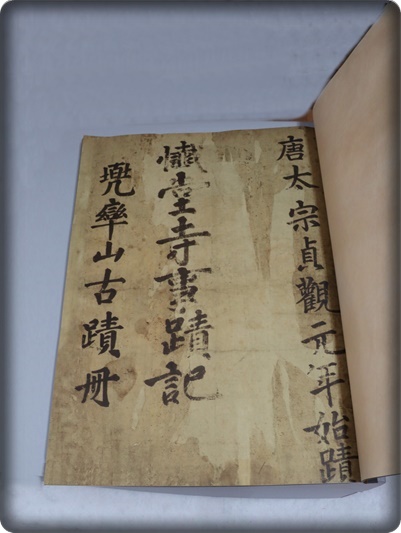 唐太宗貞觀元年始蹟
懺堂寺事蹟記
兜率山古蹟冊